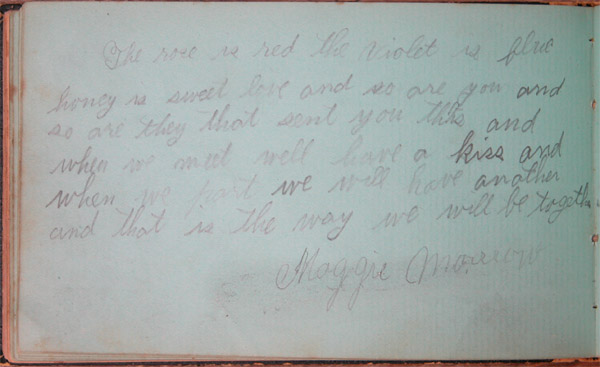 The rose is red the violet is blue
honey is sweet love and so are you and
so are they that sent you this and
when we meet well have a kiss and
when we part we will have another
and that is the way we will be together
Maggie Morrow